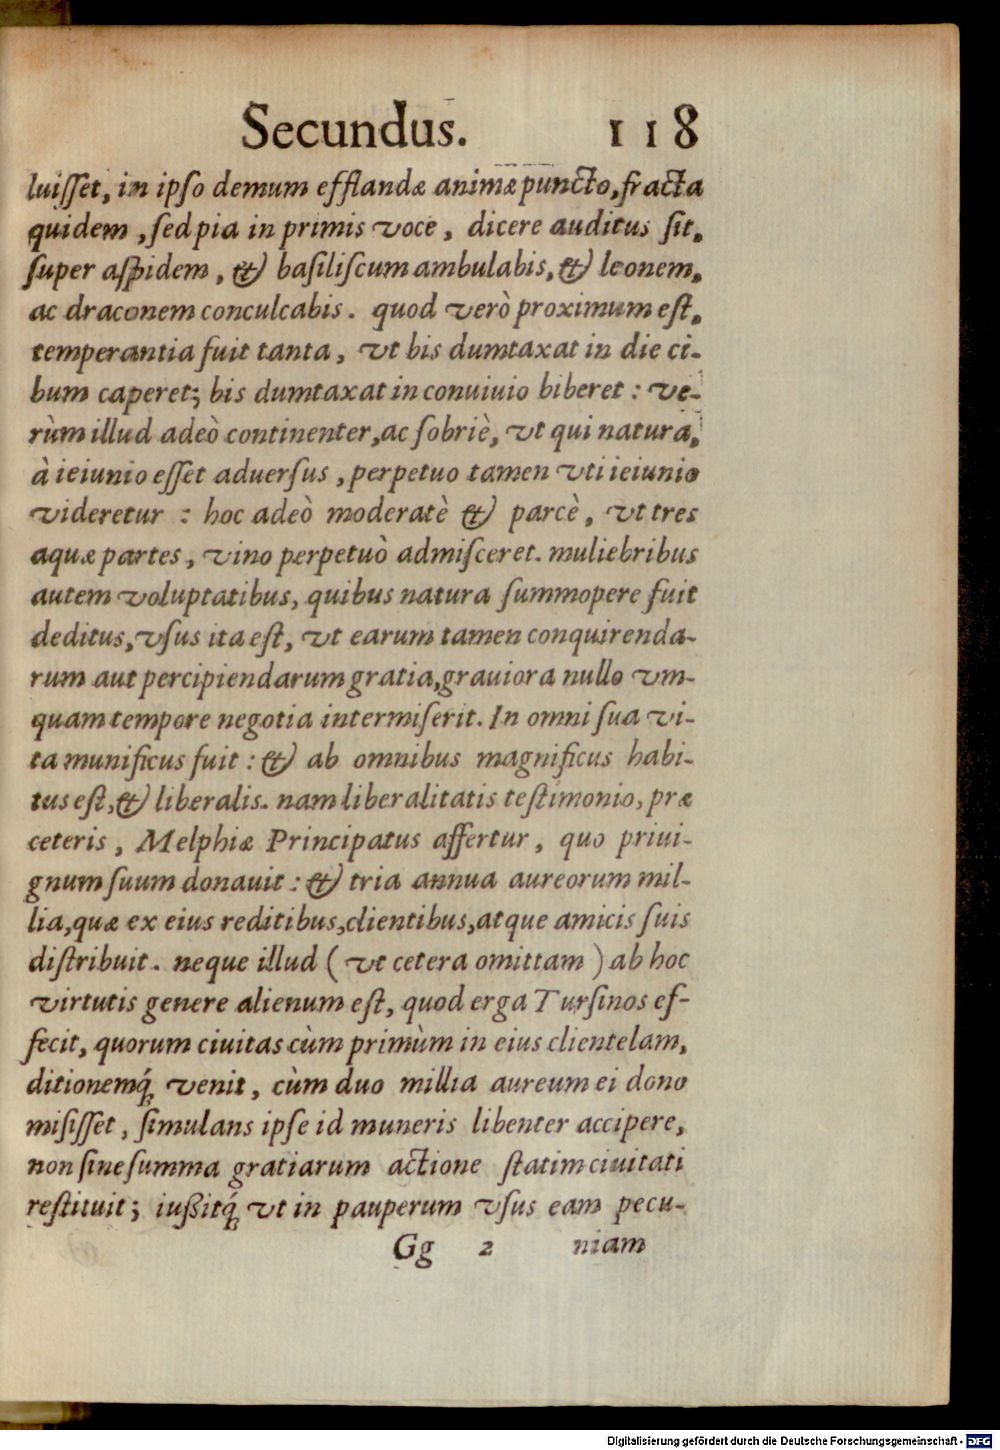 Secundus. 118
luiſſet, in ipſo demum efflandæ animæ puncto, fracta
quidem, ſed pia in primis voce, dicere auditus ſit,
ſuper aſpidem, & baſiliſcum ambulabis, & leonem,
ac draconem conculcabis. quod verò proximum eſt,
temperantia fuit tanta, vt bis dumtaxat in die ci-
bum caperet; bis dumtaxat in conuiuio biberet: ve-
rùm illud adeò continenter, ac ſobriè, vt qui natura,
à ieiunio eſſet aduerſus, perpetuo tamen vti ieiunio
videretur: hoc adeò moderatè & parcè, vt tres
aquæ partes, vino perpetuò admiſceret. muliebribus
autem voluptatibus, quibus natura ſummopere fuit
deditus, vſus ita eſt, vt earum tamen conquirenda-
rum aut percipiendarum gratia, grauiora nullo vm-
quam tempore negotia intermiſerit. In omni ſua vi-
ta munificus fuit: & ab omnibus magnificus habi-
tus eſt, & liberalis. nam liberalitatis teſtimonio, præ
ceteris, Melphiæ Principatus affertur, quo priui-
gnum ſuum donauit: & tria annua aureorum mil-
lia, quæ ex eius reditibus, clientibus, atque amicis ſuis
diſtribuit. neque illud (vt cetera omittam) ab hoc
virtutis genere alienum eſt, quod erga Turſinos ef-
fecit, quorum ciuitas cùm primùm in eius clientelam,
ditionemq́; venit, cùm duo millia aureum ei dono
miſiſſet, ſimulans ipſe id muneris libenter accipere,
non ſine ſumma gratiarum actione ſtatim ciuitati
reſtituit; iußitq́; vt in pauperum vſus eam pecu-
Gg 2 niam
Digitalisierung gefördert durch die Deutsche Forschungsgemeinschaft - DFG